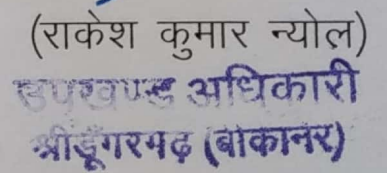 (राकेश कुमार न्योल)
उपखण्ड अधिकारी
श्रीडूँगरगढ़ (बीकानेर)